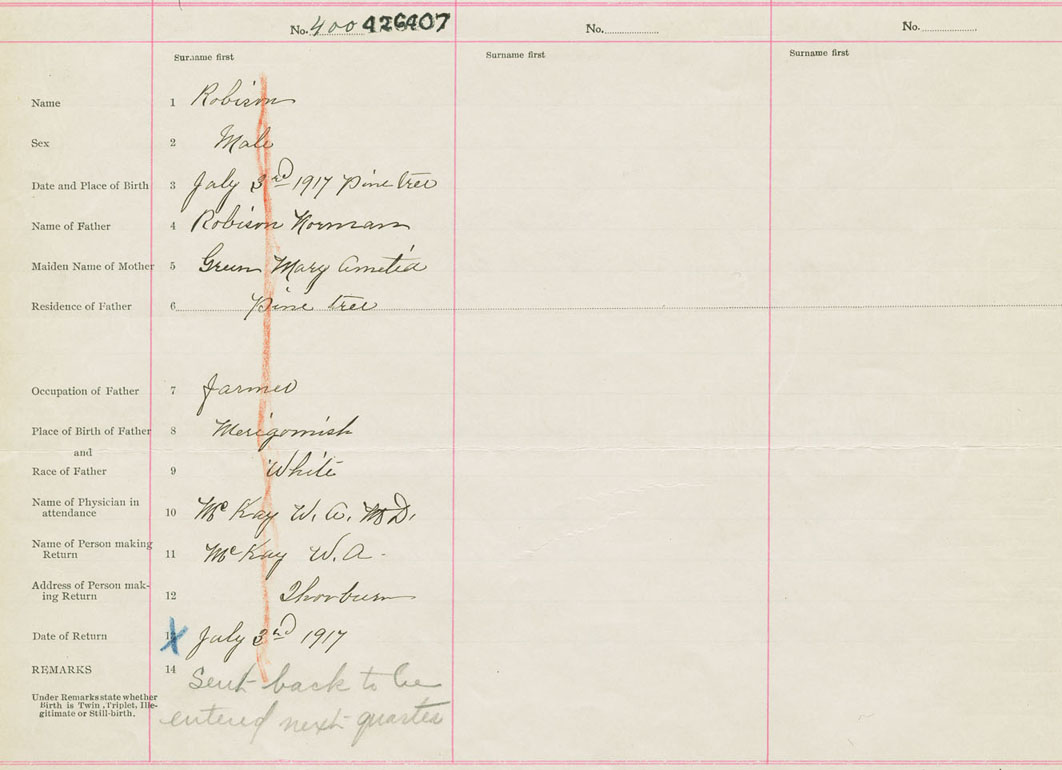 No. 400 426407 No. No.
Surname first Surname first Surname first
Name 1 Robison
Sex 2 Male
Date and Place of Birth 3 July 3rd 1917 Pine tree
Name of Father 4 Robison Norman
Maiden Name of Mother 5 Green Mary Ametia
Residence of Father 6 Pine tree
Occupation of Father 7 farmer
Place of Birth of Father 8 Merigomish
and
Race of Father 9 White
Name of Physician in
attendance 10 McKay W. A. M.D.
Name of Person making
Return 11 McKay W. A.
Address of Person mak-
ing Return 12 Thorburn
Date of Return 13 X July 3rd 1917
REMARKS 14 Sent back to be
Under Remarks state whether
Birth is Twin, Triplet, Ille-
gitimate or Still-birth.
entered next quarter